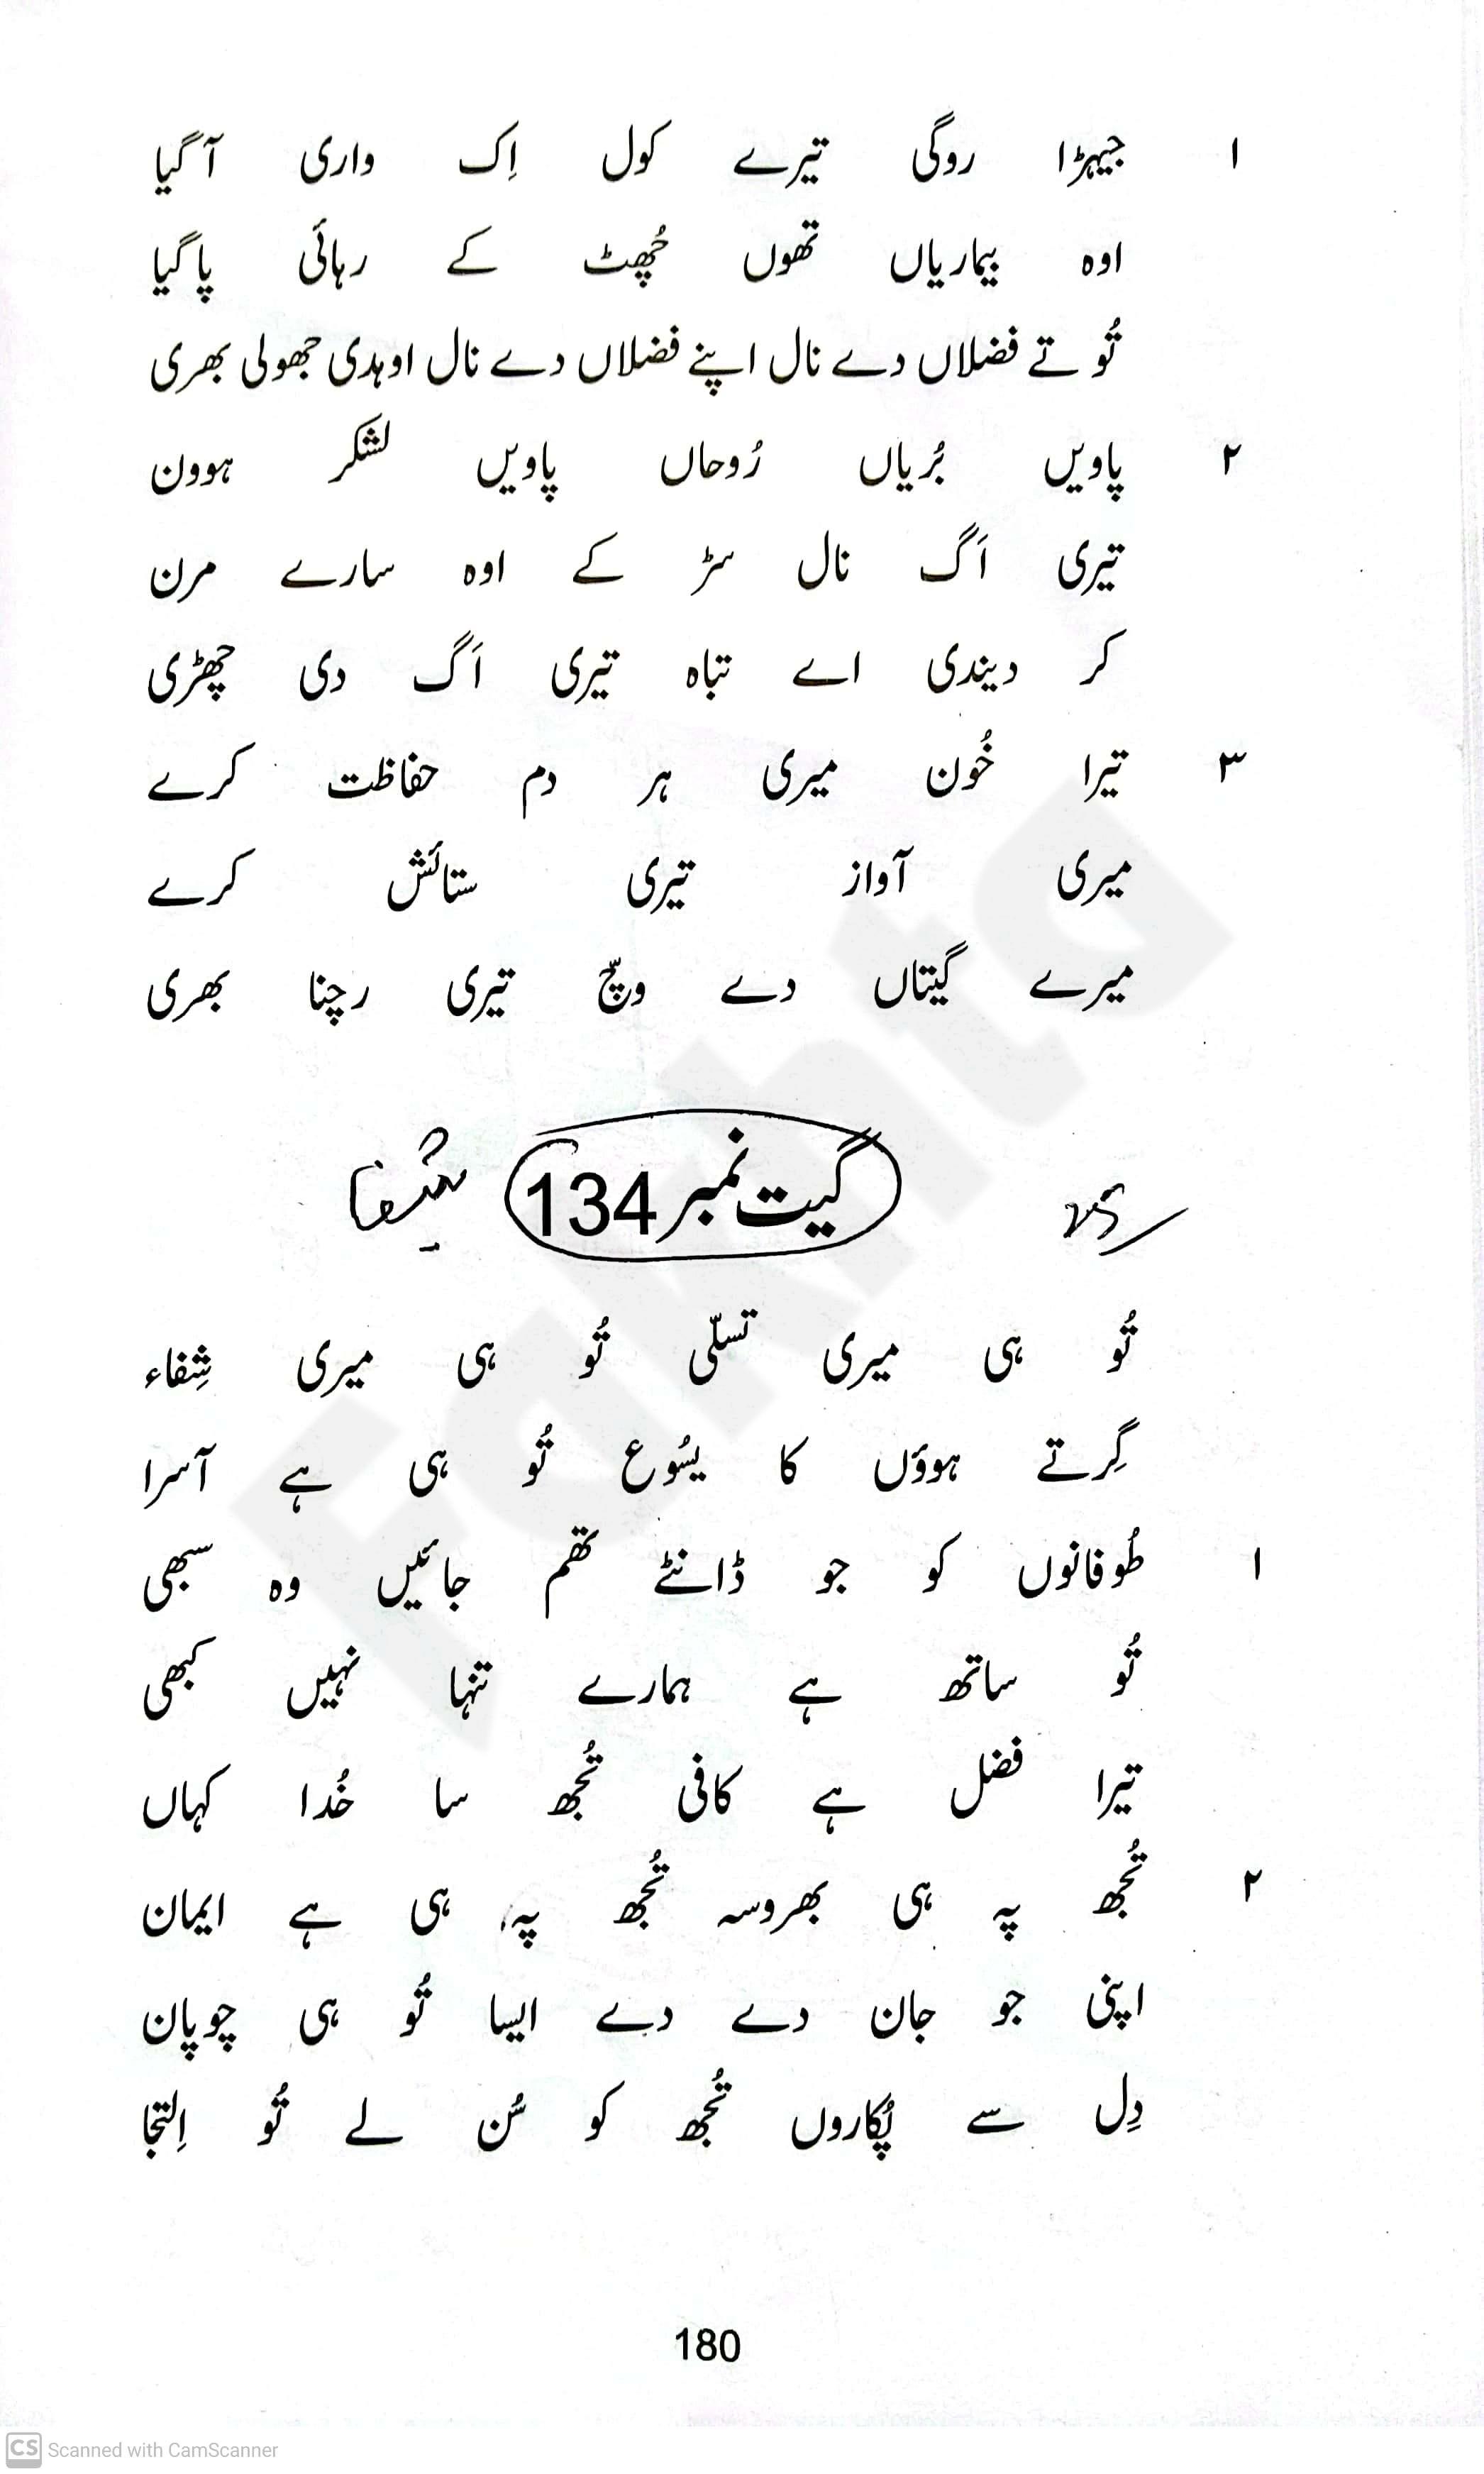 ۱ جیہڑا روگی تیرے کول اِک واری آ گیا
اوہ بیماریاں تھوں چُھٹ کے رہائی پا گیا
تُو تے فضلاں دے نال اپنے فضلاں دے نال اوہدی جھولی بھری
۲ پاویں بُریاں رُوحاں پاویں لشکر ہوون
تیری اَگ نال سڑ کے اوہ سارے مرن
کر دیندی اے تباہ تیری اَگ دی چھڑی
۳ تیرا خُون میری ہر دم حفاظت کرے
میری آواز تیری ستائش کرے
میرے گیتاں دے وچّ تیری رچنا بھری
گیت نمبر 134
تُو ہی میری تسلّی تُو ہی میری شِفاء
گِرتے ہوؤں کا یسُوع تُو ہی ہے آسرا
۱ طُوفانوں کو جو ڈانٹے تھم جائیں وہ سبھی
تُو ساتھ ہے ہمارے تنہا نہیں کبھی
تیرا فضل ہے کافی تُجھ سا خُدا کہاں
۲ تُجھ پہ ہی بھروسہ تُجھ پہ ہی ہے ایمان
اپنی جو جان دے دے ایسا تُو ہی چوپان
دِل سے پُکاروں تُجھ کو سُن لے تُو اِلتجا
180
CS Scanned with CamScanner
Fakhta